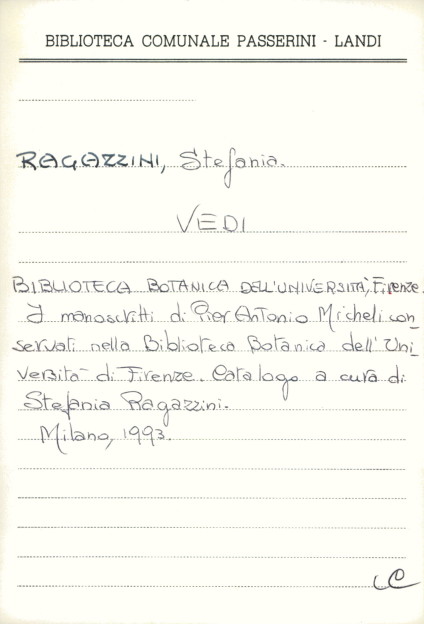 BIBLIOTECA COMUNALE PASSERINI - LANDI
RAGAZZINI, Stefania.
VEDI
BIBLIOTECA BOTANICA DELL'UNIVERSITÀ, Firenze.
I manoscritti di Pier Antonio Micheli con_
servati nella Biblioteca Botanica dell'Uni_
versità di Firenze. Catalogo a cura di
Stefania Ragazzini.
Milano, 1993.